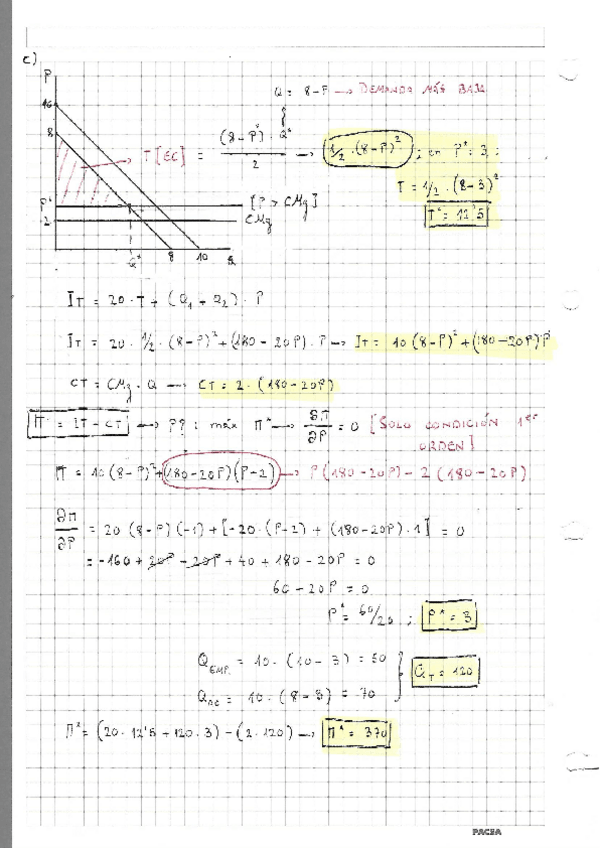 c)
P
10
8
P*
2
Q*
8
10
Q
[P > CMg]
CMg
Q = 8-P → DEMANDA MÁS BAJA
T [EC] = (8-P)·Q* / 2 → 1/2·(8-P)² ; en P*=3 ;
T = 1/2·(8-3)²
T* = 12'5
IT = 20·T + (Q1 + Q2)·P
IT = 20·1/2·(8-P)² + (180-20P)·P → IT = 10(8-P)² + (180-20P)P
CT = CMg·Q → CT = 2·(180-20P)
Π = IT - CT → P?: máx Π* → ∂Π/∂P = 0 [SOLO CONDICIÓN 1er ORDEN]
Π = 10(8-P)² + (180-20P)(P-2) → P(180-20P) - 2(180-20P)
∂Π/∂P = 20(8-P)(-1) + [-20·(P-2) + (180-20P)·1] = 0
= -160 + 20P - 20P + 40 + 180 - 20P = 0
60 - 20P = 0
P* = 60/20 ; P* = 3
QEMP. = 10·(10-3) = 50
= 10·(8-3) = 70
QT = 120
Π* = (20·12'5 + 120·3) - (2·120) → Π* = 370
PACSA